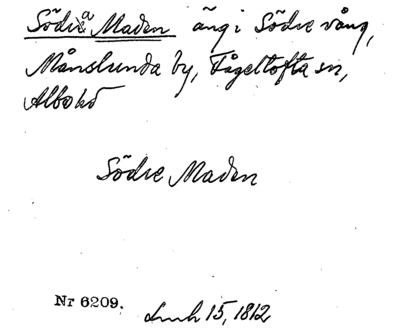 Södra Maden äng i Södre vång,
Månslunda by, Fågeltofta sn,
Albo hd
Södre Maden
Nr 6209.
Lmh 15, 1812